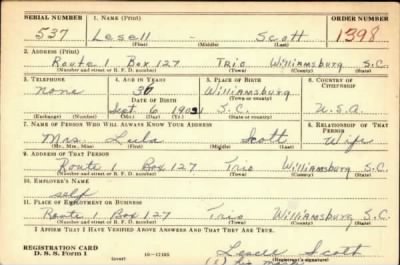 SERIAL NUMBER 1. NAME (Print) ORDER NUMBER
537 Lesell Scott 1398
(First) (Middle) (Last)
2. ADDRESS (Print)
Route 1 Box 127 Trio Williamsburg S.C.
(Number and street or R. F. D. number) (Town) (County) (State)
3. TELEPHONE 4. AGE IN YEARS 5. PLACE OF BIRTH 6. COUNTRY OF CITIZENSHIP
none 36 Williamsburg
DATE OF BIRTH (Town or county)
Sept. 6 S.C. U.S.A.
(Exchange) (Number) (Mo.) (Day) (Yr.) (State or country)
7. NAME OF PERSON WHO WILL ALWAYS KNOW YOUR ADDRESS 8. RELATIONSHIP OF THAT PERSON
Mrs. Lula Scott Wife
(Mr., Mrs., Miss) (First) (Middle) (Last)
9. ADDRESS OF THAT PERSON
Route 1 Box 127 Trio Williamsburg S.C.
(Number and street or R. F. D. number) (Town) (County) (State)
10. EMPLOYER'S NAME
self
11. PLACE OF EMPLOYMENT OR BUSINESS
Route 1 Box 127 Trio Williamsburg S.C.
(Number and street or R. F. D. number) (Town) (County) (State)
I AFFIRM THAT I HAVE VERIFIED ABOVE ANSWERS AND THAT THEY ARE TRUE.
REGISTRATION CARD
D. S. S. Form 1 (over) 16—17105 Lesell Scott
(Registrant's signature)
his mark